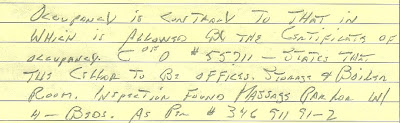 Occupancy is contrary to that in
which is allowed by the Certificate of
occupancy. C of O # 55711 - states that
the cellar to be offices. Storage & Boiler
Room. Inspection found Massage Parlor w/
4 - Beds. As per # 346 511 91-2